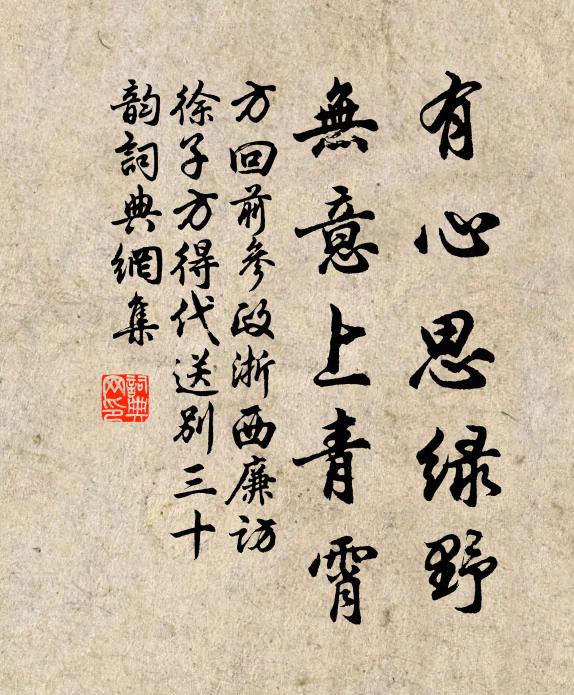 有心思緑野
無意上青霄
方回前參政浙西廉訪
徐子方得代送别三十
韵詞典網集
詞典
网印